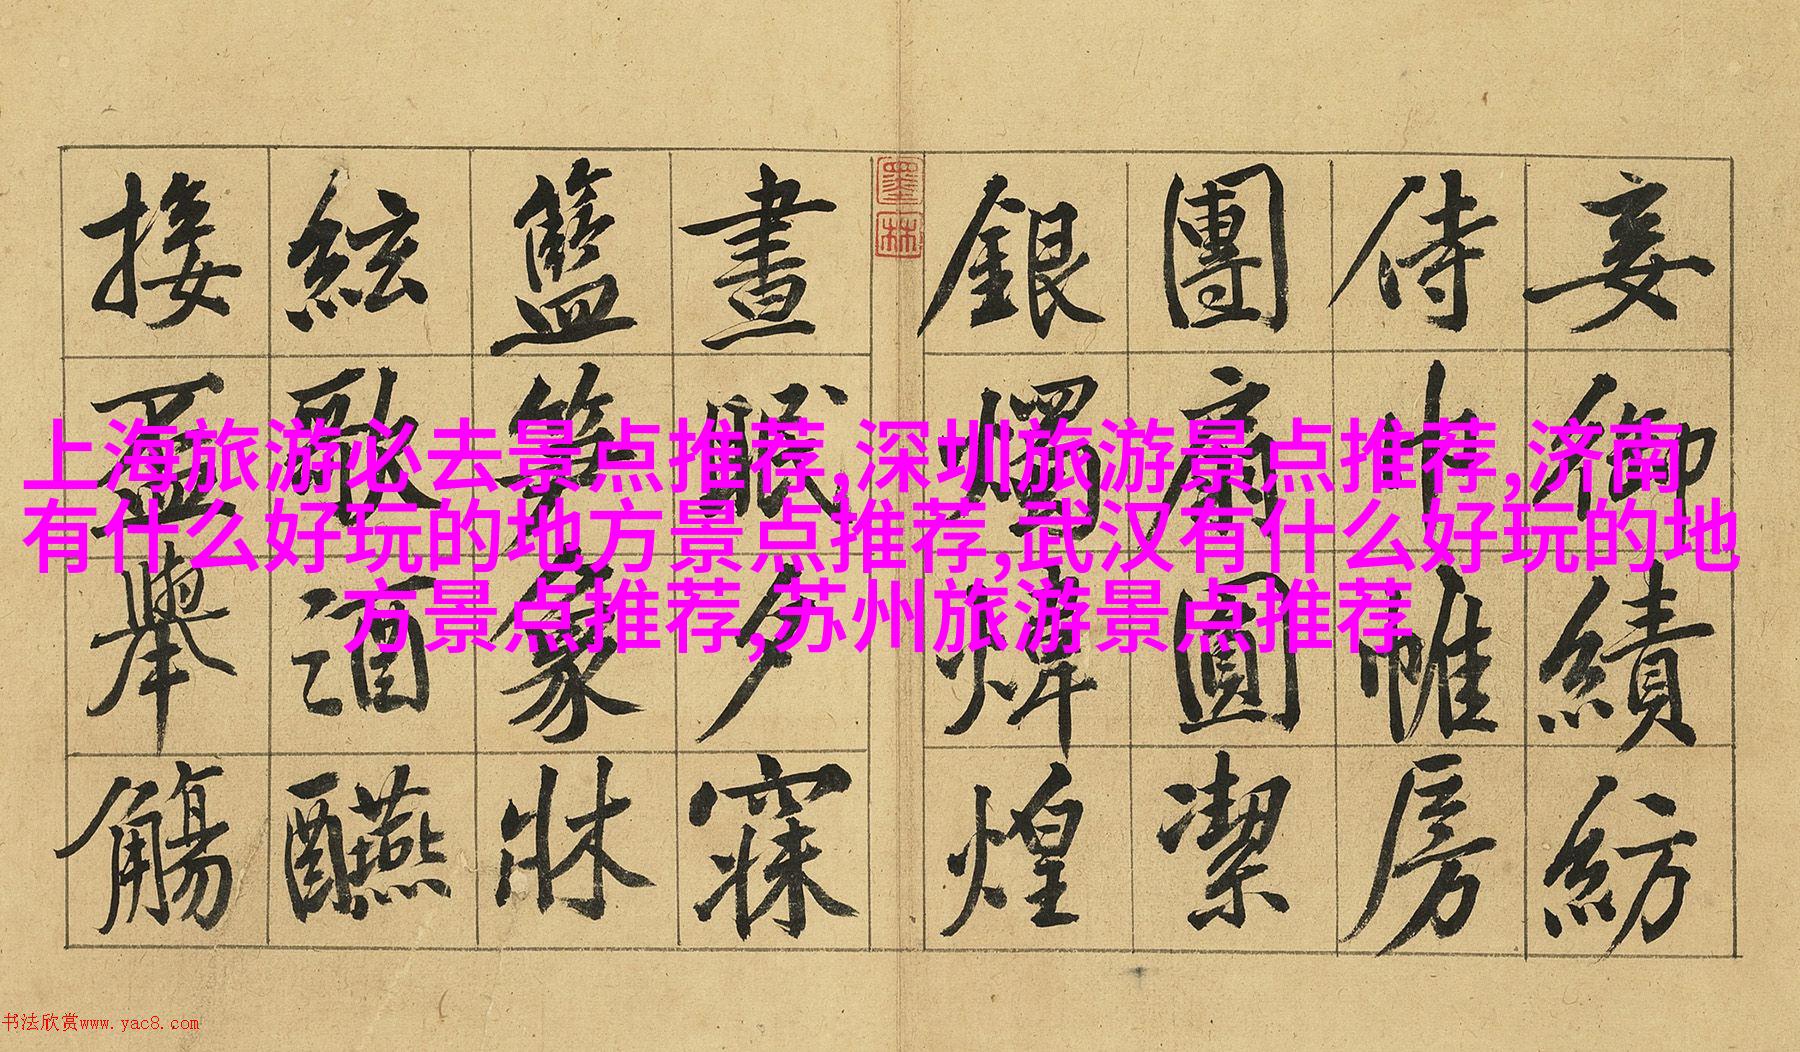 妾御績紡
侍巾帷房
團扇圓潔
銀燭煒煌
晝眠夕寐
籃笋象牀
絃歌酒讌
接盃舉觴
墨林
上海旅游必去景点推荐,深圳旅游景点推荐,济南
有什么好玩的地方景点推荐,武汉有什么好玩的地
方景点推荐,苏州旅游景点推荐
书法欣赏www.yac8.com